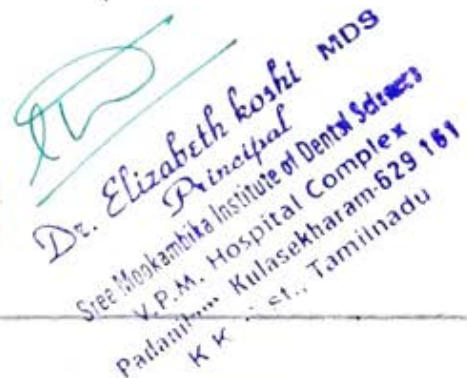 Dr. Elizabeth koshi MDS
Principal
Sree Mookambika Institute of Dental Sciences
V.P.M. Hospital Complex
Kulasekharam-629 161
Tamilnadu